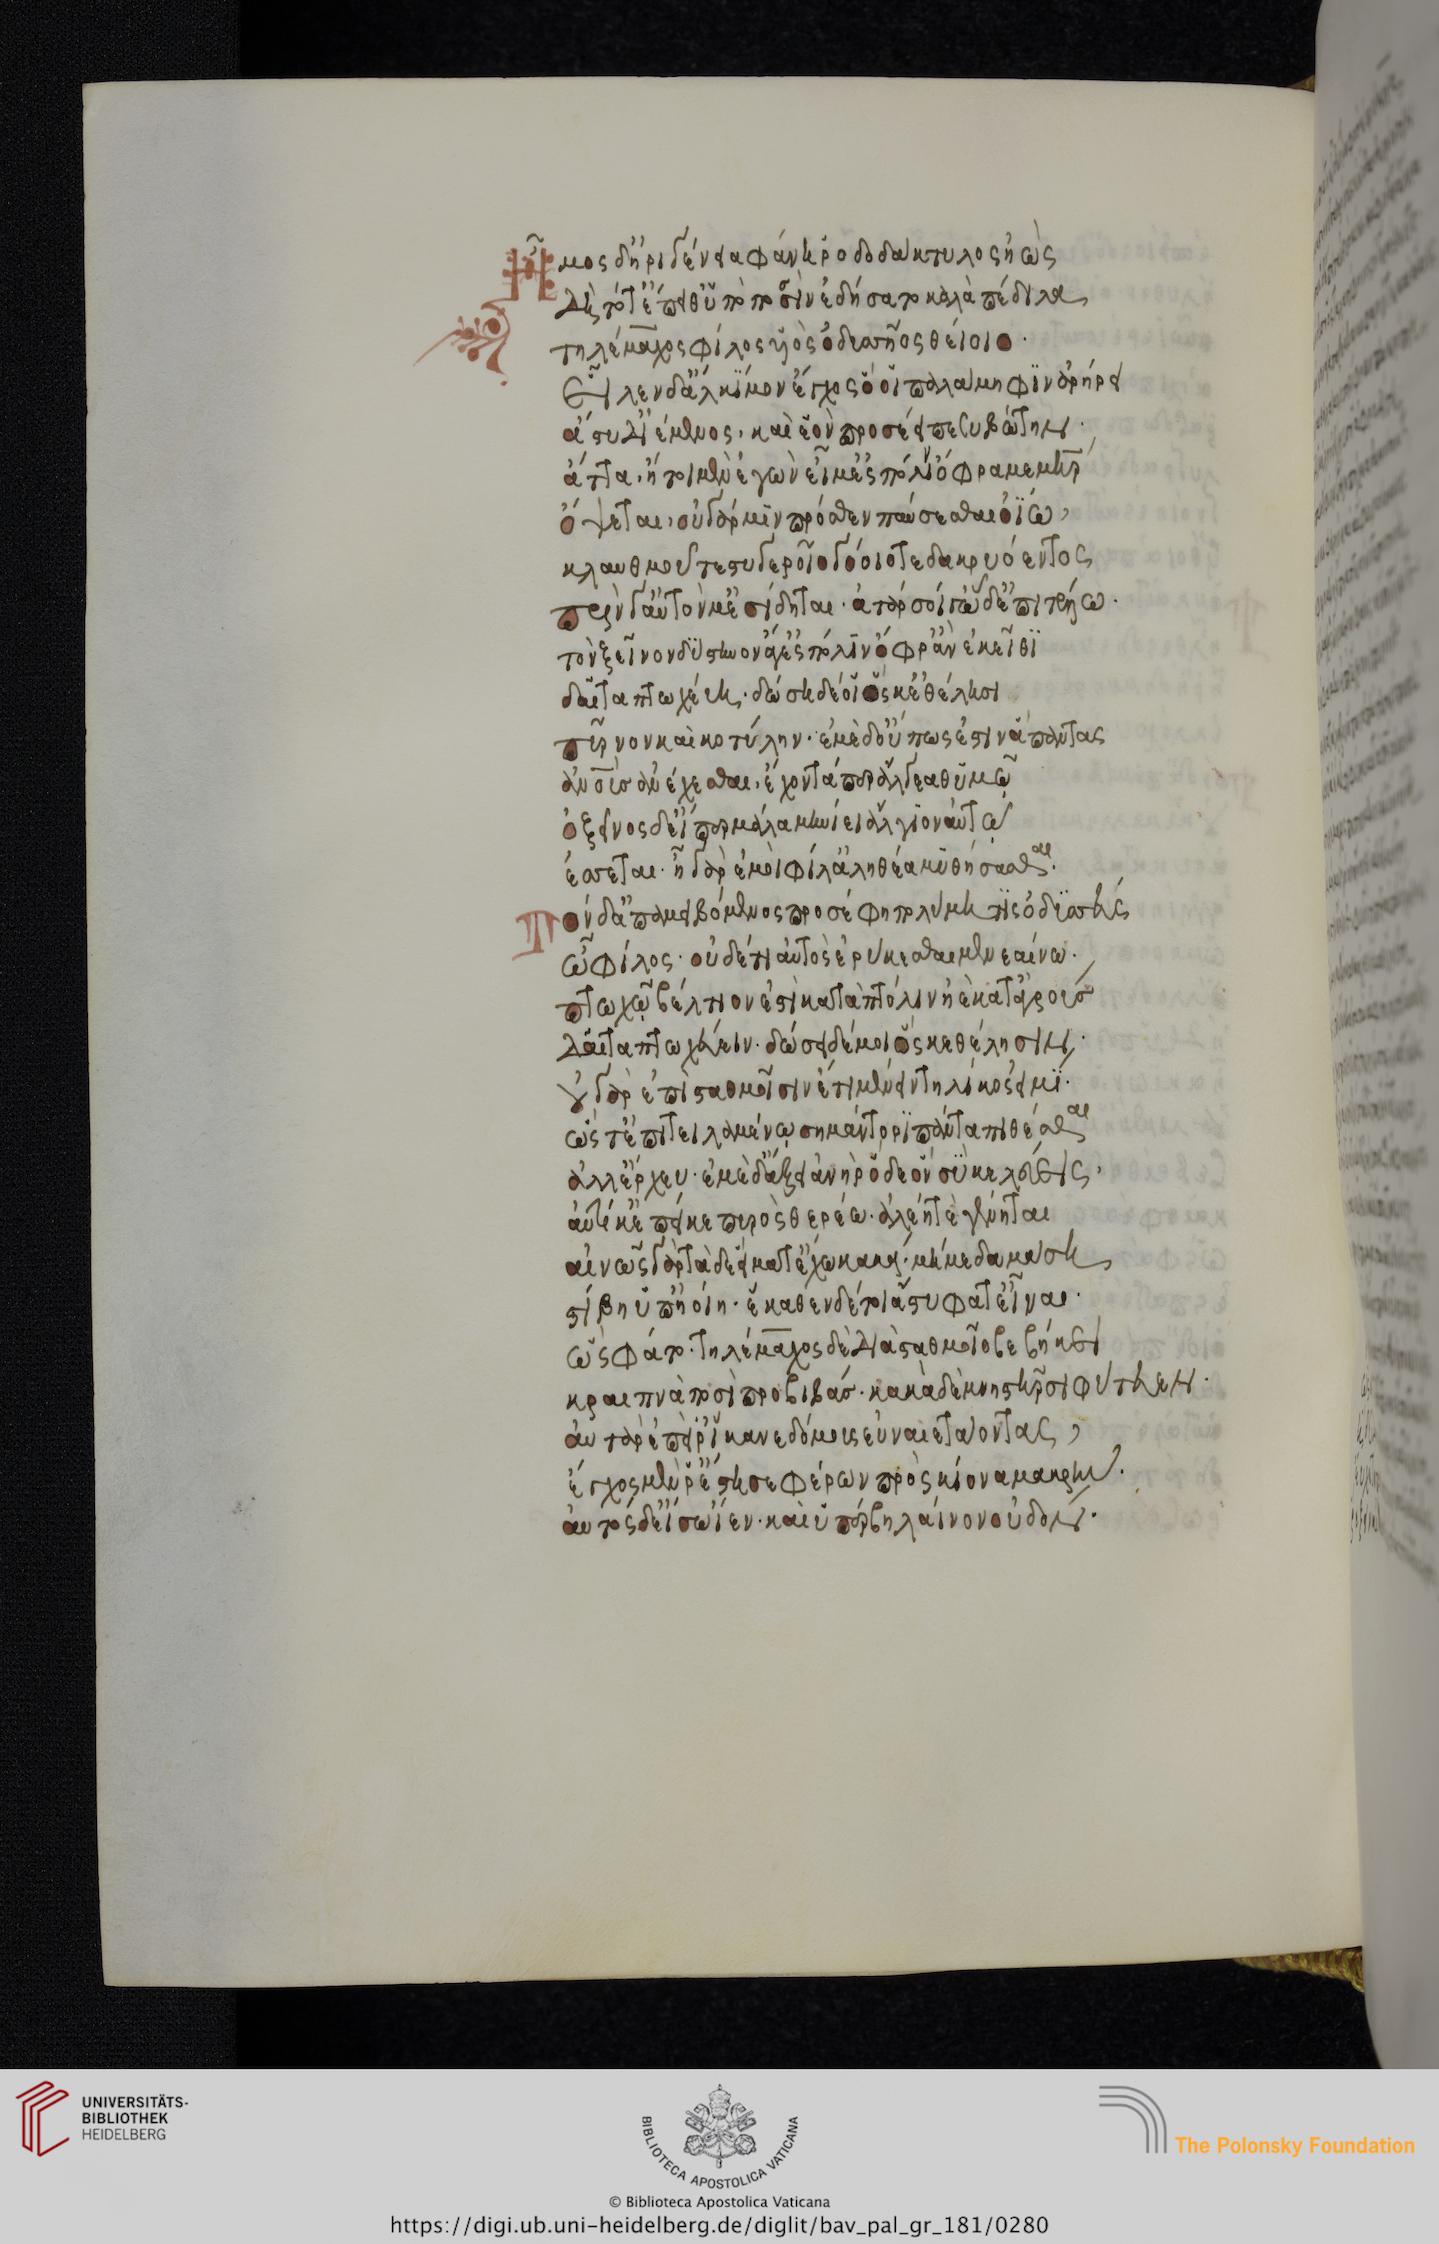 Ἦμος δ' ἠριγένεια φάνη ῥοδοδάκτυλος ἠὼς
δὴ τότ' ἔπειθ' ὑπὸ ποσσὶν ἐδήσατο καλὰ πέδιλα
τηλέμαχος φίλος υἱὸς ὀδυσσῆος θείοιο·
εἵλετο δ' ἄλκιμον ἔγχος ὅ οἱ παλάμηφιν ἀρήρει
ἄστυ δὲ ἱέμενος, καὶ ἑὸν προσέειπε συβώτην·
ἄττα, ἤτοι μὲν ἐγὼν εἶμ' ἐς πόλιν ὄφρα με μήτηρ
ὄψεται, οὐ γάρ μιν πρόσθεν παύσεσθαι ὀΐω,
κλαυθμοῦ τε στυγεροῖο γόοιό τε δακρυόεντος
πρίν γ' αὐτόν με ἴδηται· ἀτὰρ σοί γ' ὧδ' ἐπιτέλλω·
τὸν ξεῖνον δύστηνον ἄγ' ἐς πόλιν ὄφρ' ἂν ἐκεῖθι
δαῖτα πτωχεύῃ· δώσει δέ οἱ ὅς κ' ἐθέλῃσι
πύρνον καὶ κοτύλην· ἐμὲ δ' οὔπως ἔστιν ἅπαντας
ἀνθρώπους ἀνέχεσθαι, ἔχοντά περ ἄλγεα θυμῷ
ὁ ξεῖνος δ' εἴπερ μάλα μηνίει ἄλγιον αὐτῷ
ἔσσεται· ἦ γὰρ ἐμοὶ φίλ' ἀληθέα μυθήσασθαι·
Τὸν δ' ἀπαμειβόμενος προσέφη πολύμητις ὀδυσσεύς
ὦ φίλος· οὐδέ τοι αὐτὸς ἐρύκεσθαι μενεαίνω·
πτωχῷ βέλτιόν ἐστι κατὰ πτόλιν ἠὲ κατ' ἀγροὺς
δαῖτα πτωχεύειν· δώσει δέ μοι ὅς κε θέλησιν·
οὐ γὰρ ἐπὶ σταθμοῖσι μένειν ἔτι τηλίκος εἰμί·
ὥς τ' ἐπιτειλαμένῳ σημάντορι πάντα πιθέσθαι
ἀλλ' ἔρχευ· ἐμὲ δ' ἄξει ἀνὴρ ὅδε ὃν σὺ κελεύεις,
αὐτίκ' ἐπεί κε πυρὸς θερέω· ἀλέη τε γένηται
αἰνῶς γὰρ τάδε εἵματ' ἔχω κακά· μή με δαμάσῃ
στίβη ὑπηοίη· ἕκαθεν δέ τοι ἄστυ φάτ' εἶναι·
ὣς φάτο· τηλέμαχος δὲ διὰ σταθμοῖο βεβήκει
κραιπνὰ ποσὶ προβιβάς· κακὰ δὲ μνηστῆρσι φύτευεν·
αὐτὰρ ἐπεί ῥ' ἵκανε δόμους εὐναιετάοντας,
ἔγχος μέν ῥ' ἔστησε φέρων πρὸς κίονα μακρήν·
αὐτὸς δ' εἴσω ἴεν· καὶ ὑπέρβη λάινον οὐδόν·
UNIVERSITÄTS-
BIBLIOTHEK
HEIDELBERG
BIBLIOTECA APOSTOLICA VATICANA
The Polonsky Foundation
© Biblioteca Apostolica Vaticana
https://digi.ub.uni-heidelberg.de/diglit/bav_pal_gr_181/0280